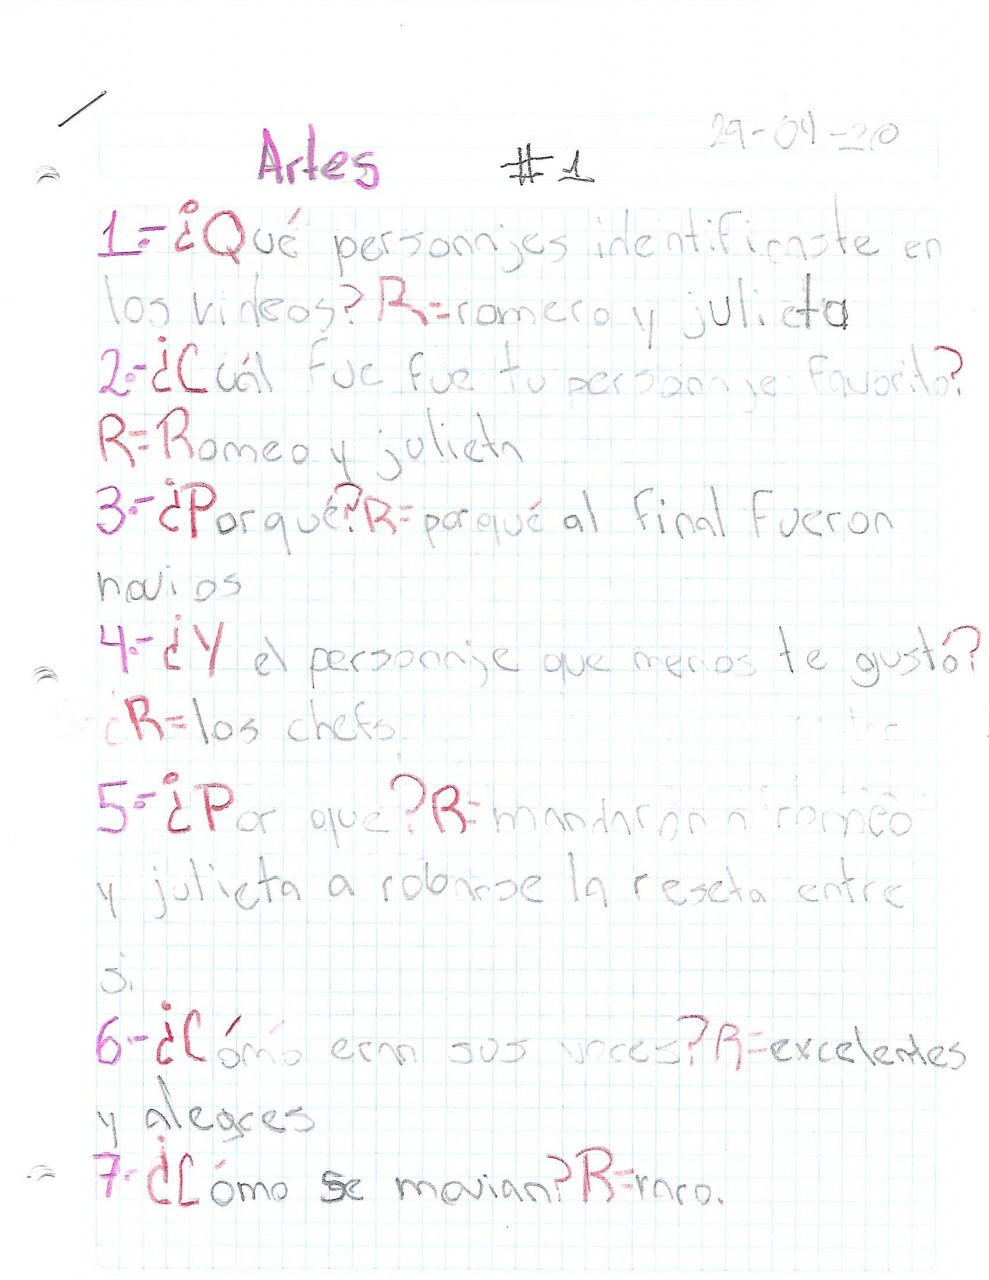 29-04-20
Artes #1
1.-¿Qué personajes identificaste en
los videos? R=romero y julieta
2.-¿Cuál fue fue tu personaje favorito?
R=Romeo y julieta
3.-¿Porqué? R=porqué al final fueron
novios
4.-¿Y el personaje que menos te gustó?
R=los chefs.
5.-¿Por que? R=mandaron a romeo
y julieta a robarse la reseta entre
si.
6-¿Cómo eran sus voces? R=excelentes
y alegres
7-¿Cómo se movian? R=raro.